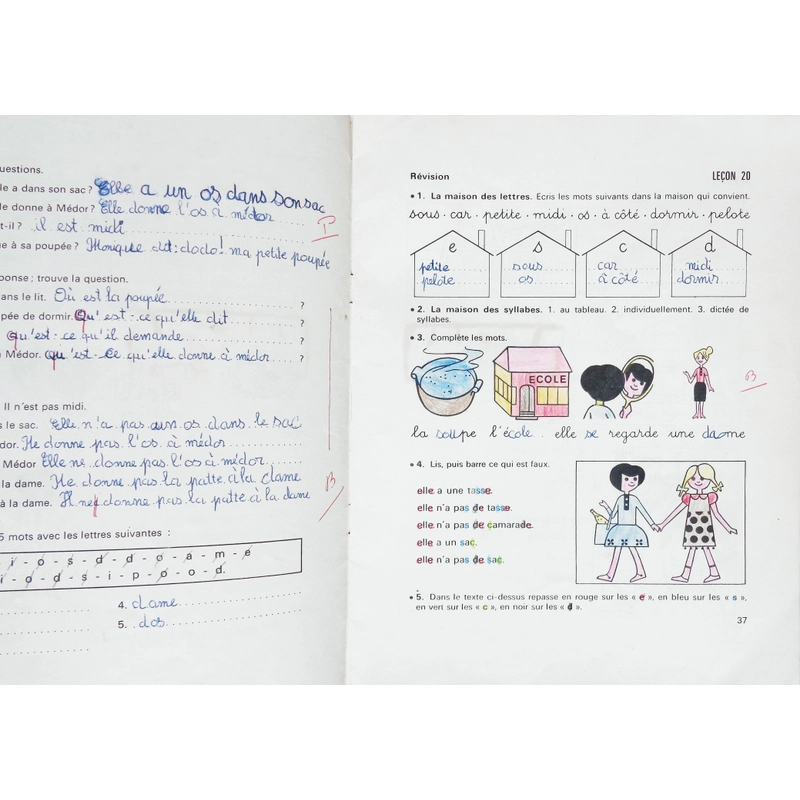 uestions.
le a dans son sac ? Elle a un os dans son sac
le donne à Médor ? Elle donne l'os à médor
t-il ? il est midi
ue à sa poupée ? Monique dit : dodo ! ma petite poupée
ponse ; trouve la question.
ans le lit. Où est la poupée ?
pée de dormir. Qu'est-ce qu'elle dit ?
qu'est-ce qu'il demande ?
Médor. Qu'est-ce qu'elle donne à médor ?
Il n'est pas midi.
s le sac. Elle n'a pas un os dans le sac
dor. He donne pas l'os à médor
Médor Elle ne donne pas l'os à médor
la dame. He donne pas la patte à la dame
à la dame. Il ne donne pas la patte à la dame
B
5 mots avec les lettres suivantes :
i - o - s - d - d - o - a - m - e
o - d - s - i - p - o - o - d.
4. dame
5. dos
Révision LEÇON 20
• 1. La maison des lettres. Ecris les mots suivants dans la maison qui convient.
sous · car · petite · midi · os · à côté · dormir · pelote
e s c d
petite sous car midi
pelote os à côté dormir
• 2. La maison des syllabes. 1. au tableau. 2. individuellement. 3. dictée de
syllabes.
• 3. Complète les mots.
ECOLE
B
la soupe l'école. elle se regarde une dame
• 4. Lis, puis barre ce qui est faux.
elle a une tasse.
elle n'a pas de tasse.
elle n'a pas de camarade.
elle a un sac.
elle n'a pas de sac.
• 5. Dans le texte ci-dessus repasse en rouge sur les « e », en bleu sur les « s »,
en vert sur les « c », en noir sur les « d ».
37